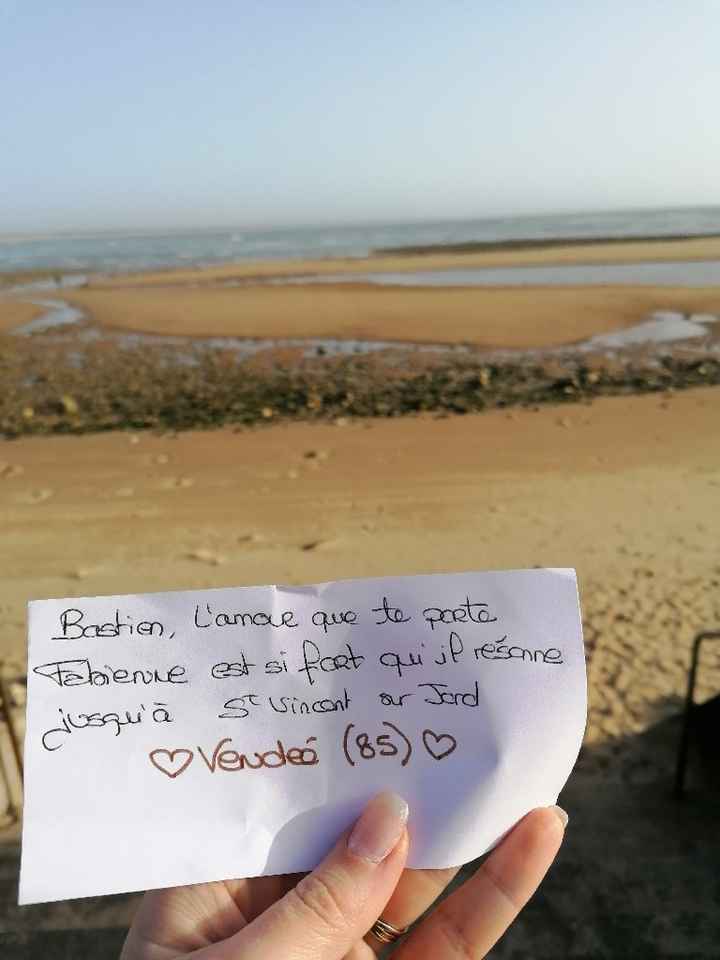 Bastien, L'amour que te porte
Fabienne est si fort qu'il résonne
jusqu'à St Vincent sur Jard
♡ Vendeé (85) ♡